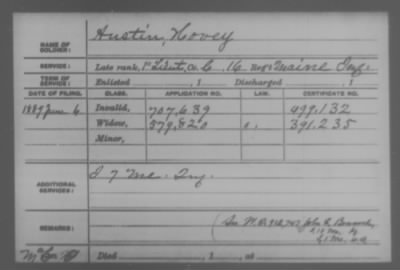 NAME OF SOLDIER: Austin, Hovey
SERVICE: Late rank, 1st Lieut, Co. C, 16 Reg't Maine Inf.
TERM OF SERVICE: Enlisted , 1 Discharged , 1
DATE OF FILING. CLASS. APPLICATION NO. LAW. CERTIFICATE NO.
1889 June 6 Invalid, 707,639 499,132
Widow, 579,820 391,235
Minor,
ADDITIONAL SERVICES: I 7 Me. Inf.
REMARKS: John
Died , 1 , at